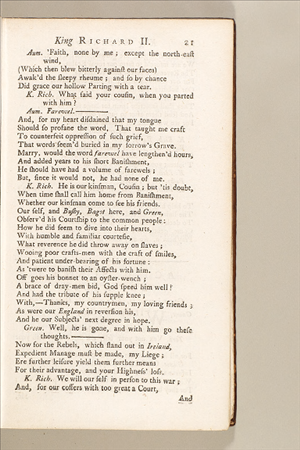 King RICHARD II. 21
Aum. 'Faith, none by me; except the north-eaſt
wind,
(Which then blew bitterly againſt our faces)
Awak'd the ſleepy rheume; and ſo by chance
Did grace our hollow Parting with a tear.
K. Rich. What ſaid your couſin, when you parted
with him?
Aum. Farewel.
And, for my heart diſdained that my tongue
Should ſo profane the word, That taught me craft
To counterfeit oppreſſion of ſuch grief,
That words ſeem'd buried in my ſorrow's Grave.
Marry, would the word farewel have lengthen'd hours,
And added years to his ſhort Baniſhment,
He ſhould have had a volume of farewels;
But, ſince it would not, he had none of me.
K. Rich. He is our kinſman, Couſin; but 'tis doubt,
When time ſhall call him home from Baniſhment,
Whether our kinſman come to ſee his friends.
Our ſelf, and Buſhy, Bagot here, and Green,
Obſerv'd his Courtſhip to the common people:
How he did ſeem to dive into their hearts,
With humble and familiar courteſie,
What reverence he did throw away on ſlaves;
Wooing poor crafts-men with the craft of ſmiles,
And patient under-bearing of his fortune:
As 'twere to baniſh their Affects with him.
Off goes his bonnet to an oyſter-wench;
A brace of dray-men bid, God ſpeed him well!
And had the tribute of his ſupple knee;
With,—Thanks, my countrymen, my loving friends;
As were our England in reverſion his,
And he our Subjects' next degree in hope.
Green. Well, he is gone, and with him go theſe
thoughts.
Now for the Rebels, which ſtand out in Ireland,
Expedient Manage muſt be made, my Liege;
Ere further leiſure yield them further means
For their advantage, and your Highneſs' loſs.
K. Rich. We will our ſelf in perſon to this war;
And, for our coffers with too great a Court,
And